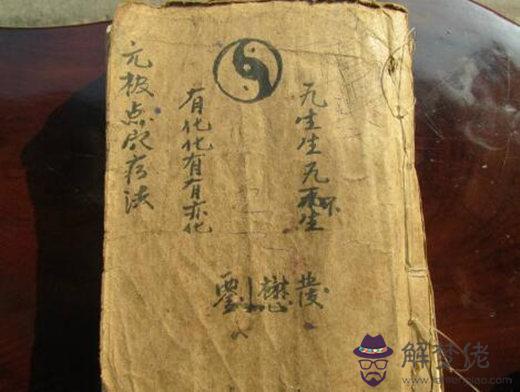 无生生无不生
有化化有有亦化
元极点穴疗法
劉懋
解梦佬